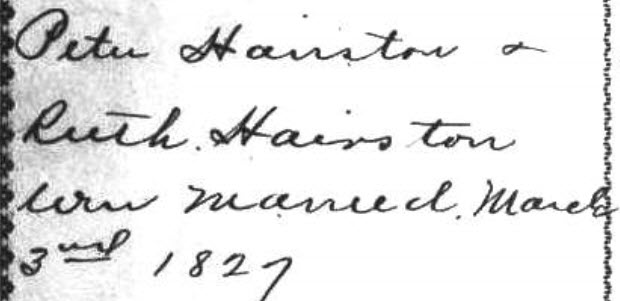 Peter Hairston &
Ruth. Hairston
were married. March
3rd 1827